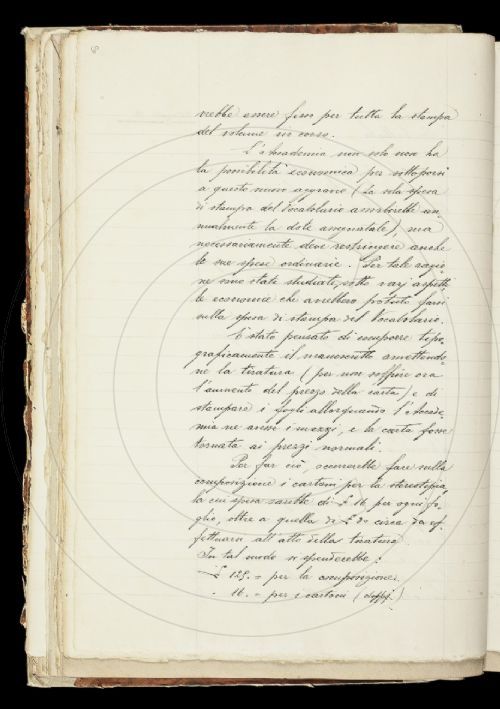 vrebbe essere fisso per tutta la stampa
del volume in corso.
L'Accademia non solo non ha
la possibilità economica per sottoporsi
a questo nuovo aggravio (la sola spesa
di stampa del Vocabolario assorbirebbe an
nualmente la dote assegnatale), ma
necessariamente deve restringere anche
le sue spese ordinarie. Per tale ragio
ne sono state studiate, sotto varj aspetti
le economie che avrebbero potuto farsi
sulla spesa di stampa del Vocabolario.
È stato pensato di comporre tipo
graficamente il manoscritto omettendo
ne la tiratura (per non soffrire ora
l'aumento del prezzo della carta) e di
stampare i fogli allorquando l'Accade
mia ne avesse i mezzi, e la carta fosse
tornata ai prezzi normali.
Per far ciò, occorrerebbe fare sulla
composizione i cartoni per la stereotipia,
la cui spesa sarebbe di £ 16 per ogni fo
glio, oltre a quella di £ 30 circa da ef
fettuarsi all'atto della tiratura.
In tal modo si spenderebbe:
£ 125. = per la composizione.
" 16. = per i cartoni (doppj.)